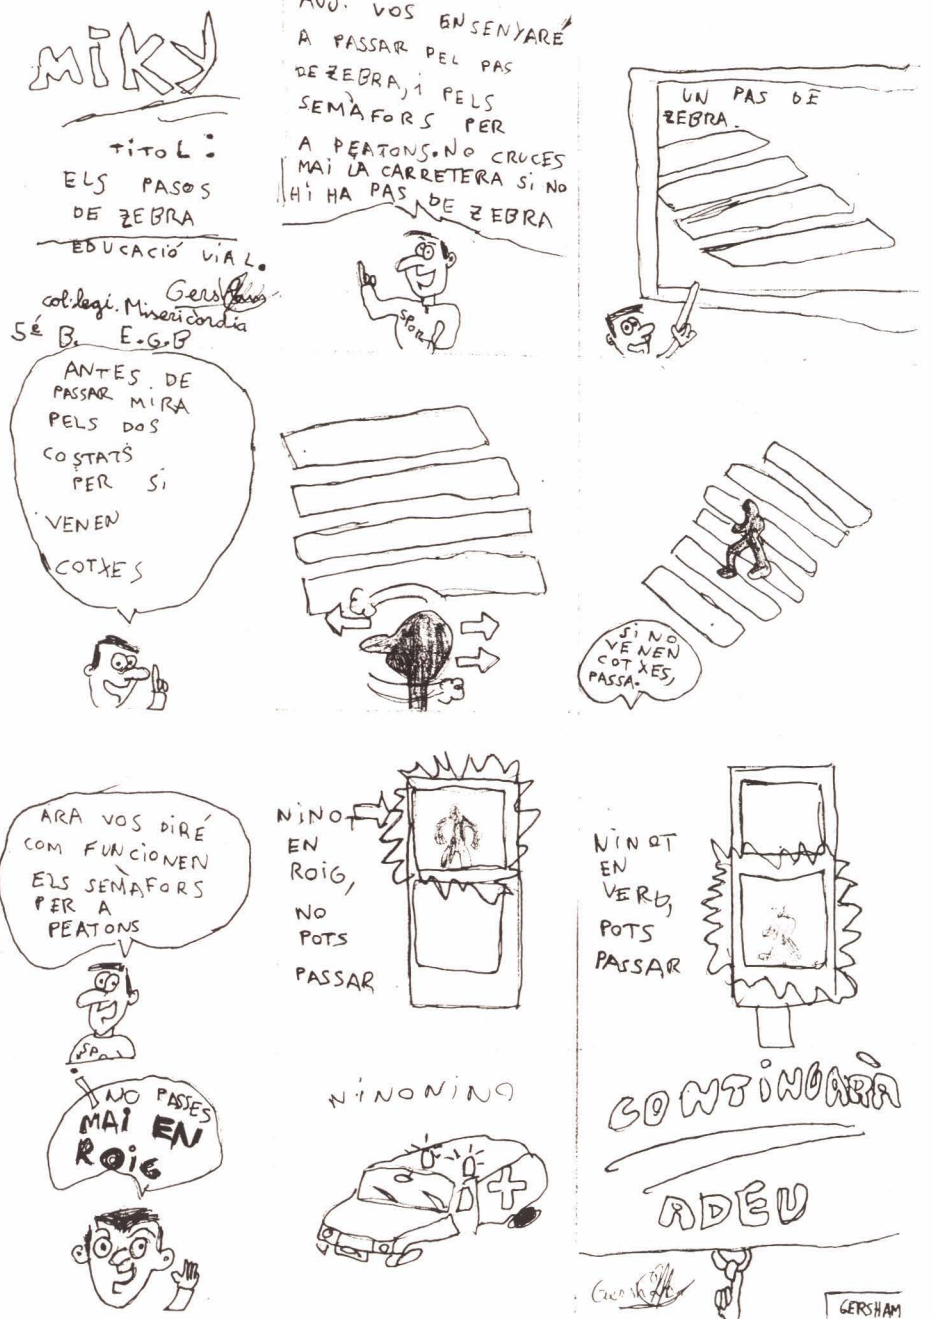 MIKY
TITOL:
ELS PASOS
DE ZEBRA
EDUCACIÓ VIAL.
col·legi. Misericòrdia
5é B. E.G.B
AVU. VOS ENSENYARÉ
A PASSAR PEL PAS
DE ZEBRA, i PELS
SEMÀFORS PER
A PEATONS. NO CRUCES
MAI LA CARRETERA SI NO
HI HA PAS DE ZEBRA
SPORT
UN PAS DE
ZEBRA.
ANTES DE
PASSAR MIRA
PELS DOS
COSTATS
PER SI
VENEN
COTXES
SI NO
VENEN
COTXES,
PASSA.
ARA VOS DIRÉ
COM FUNCIONEN
ELS SEMÀFORS
PER A
PEATONS
SP
NINOT
EN
ROIG,
NO
POTS
PASSAR
NINOT
EN
VERD,
POTS
PASSAR
¡NO PASSES
MAI EN
ROIG
NINONINO
CONTINUARÀ
ADEU
GERSHAM